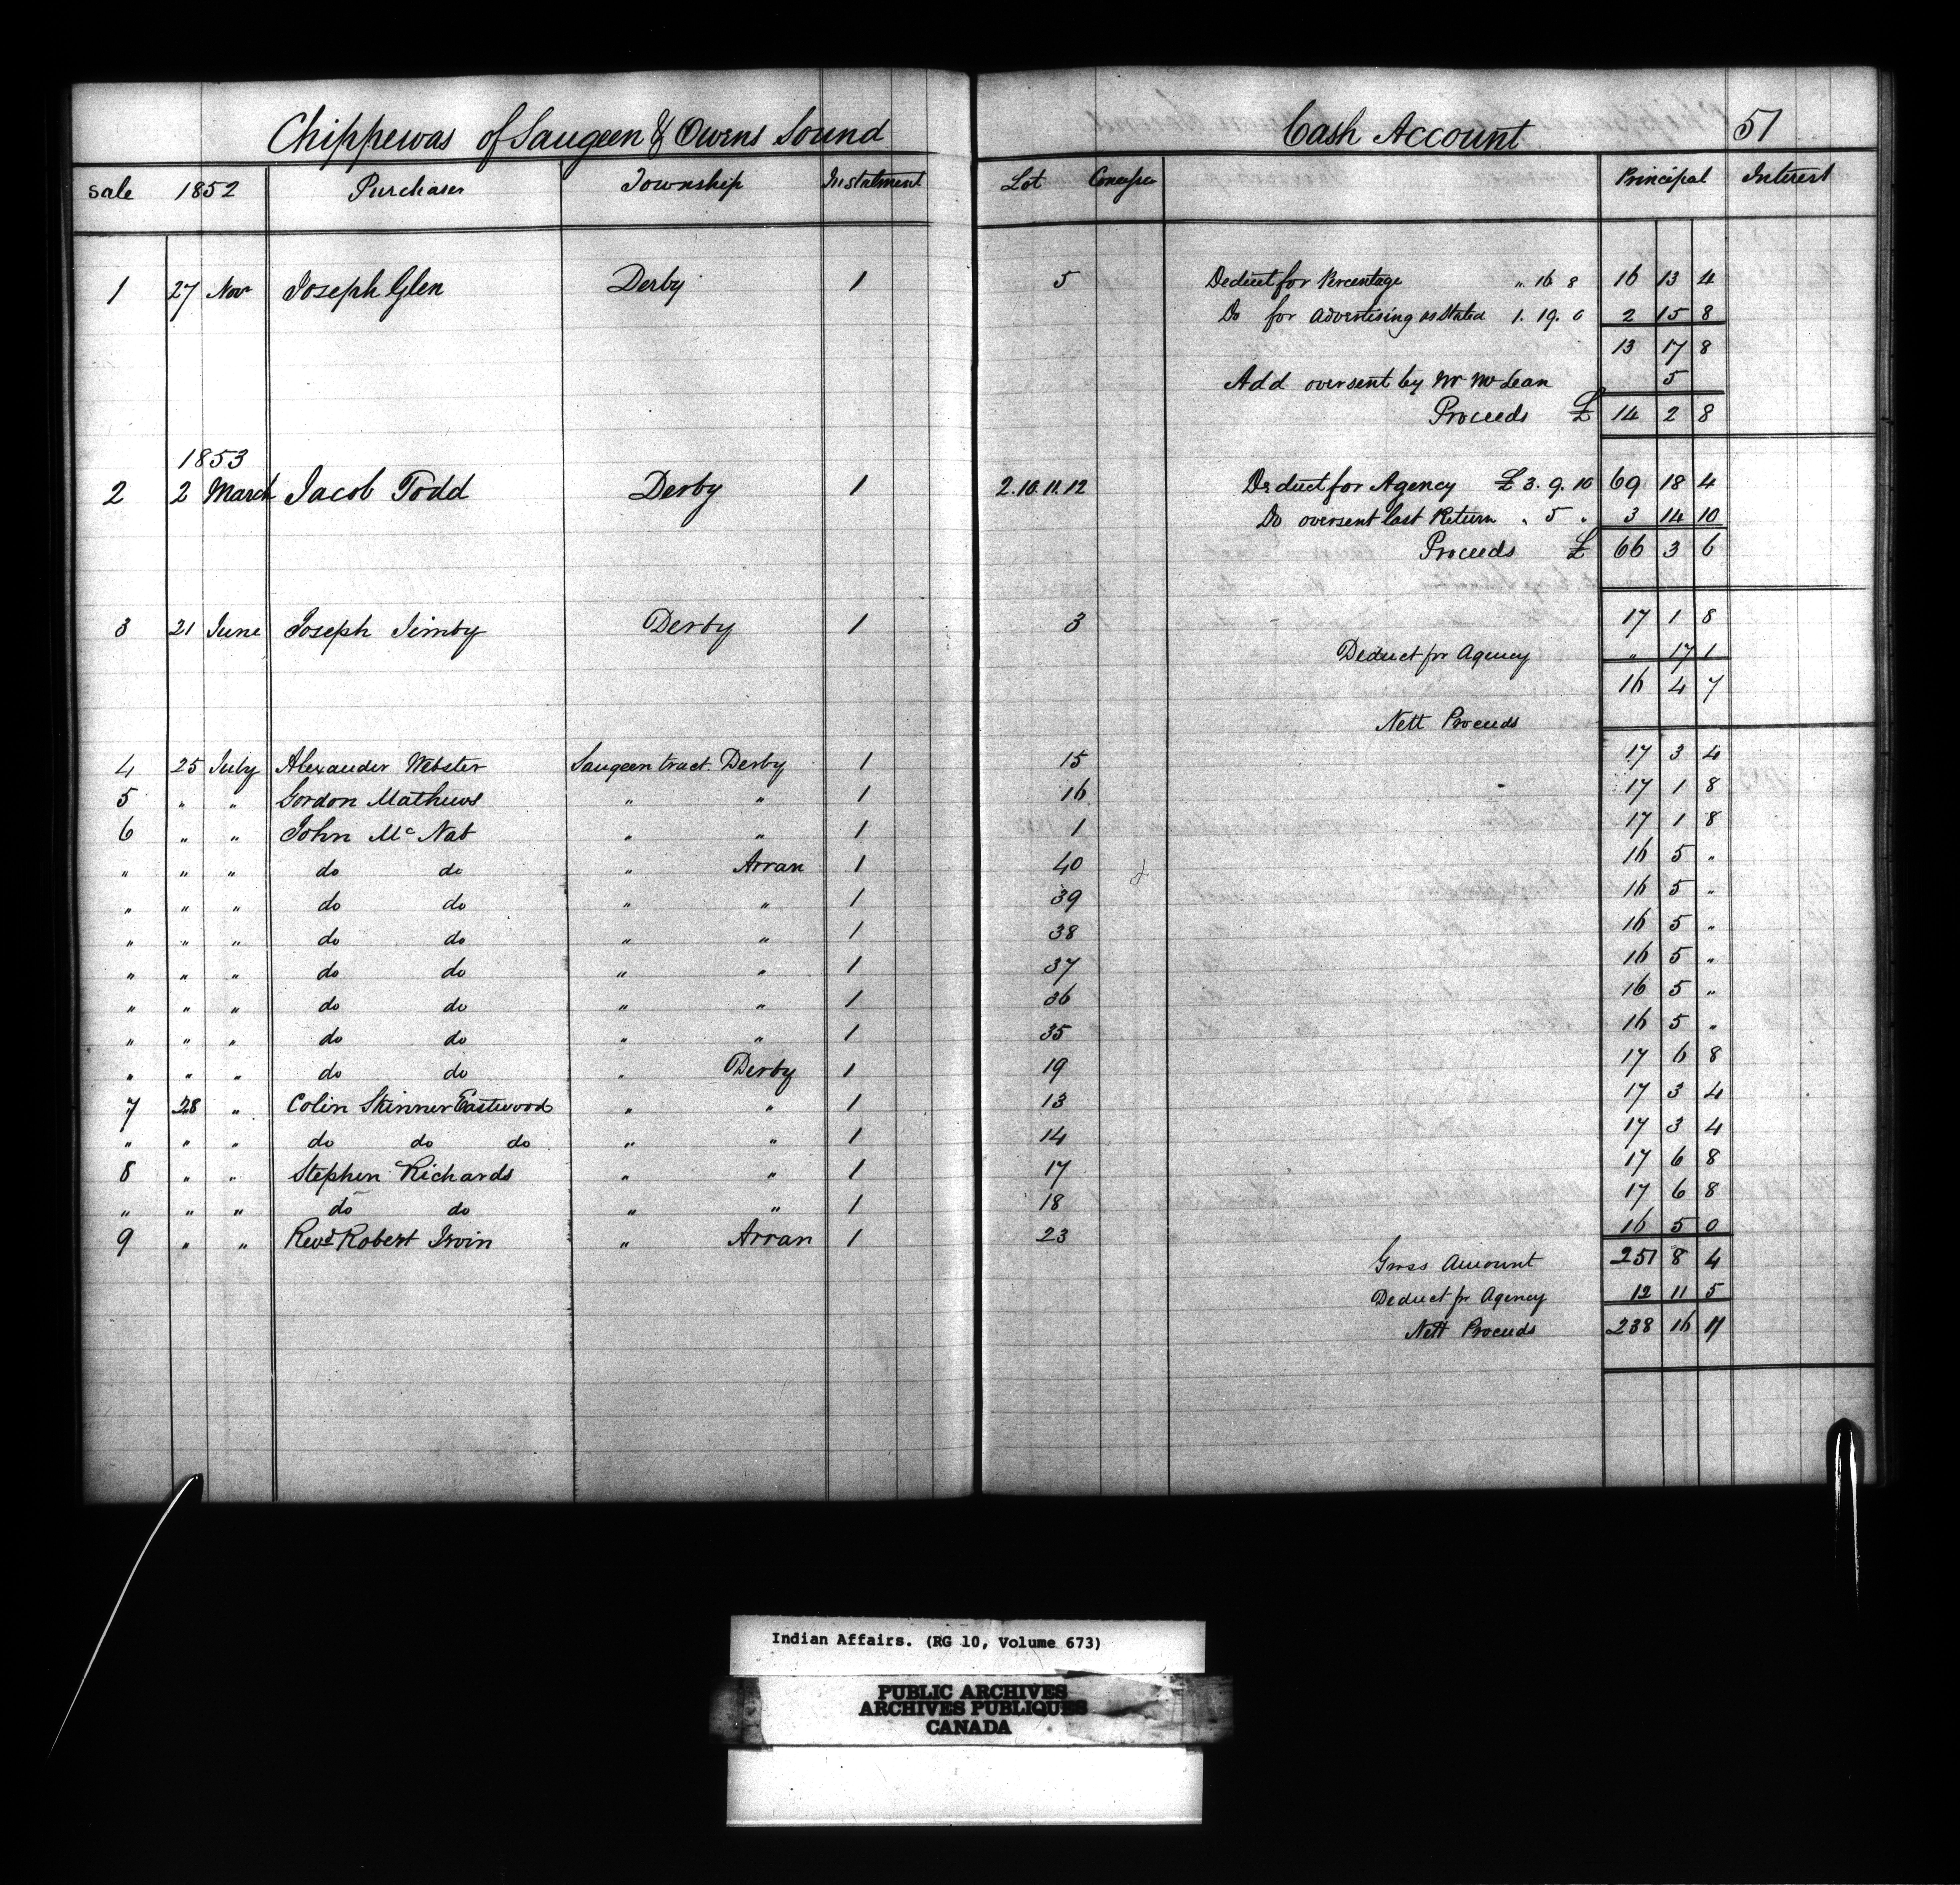 Chippewas of Saugeen & Owens Sound Cash Account 51
Sale 1852 Purchaser Township Instalment Lot Principal Interest
1 27 Nov Joseph Glen Derby 1 5 Deduct for Percentage " 16 8 16 13 4
Do for Advertising as Stated 1. 19. 0 2 15 8
13 17 8
Add oversent by Mr McLean 5
Proceeds £ 14 2 8
1853
2 2 March Jacob Todd Derby 1 2.10.11.12 Deduct for Agency £ 3. 9. 10 69 18 4
Do oversent last Return " 5 " 3 14 10
Proceeds £ 66 3 6
3 21 June Joseph Jimby Derby 1 3 17 1 8
Deduct pr Agency " 17 1
16 4 7
Nett Proceeds
4 25 July Alexander Webster Saugeen tract. Derby 1 15 17 3 4
5 " " Gordon Mathews " " 1 16 17 1 8
6 " " John Mc Nab " " 1 1 17 1 8
" " " do do " Arran 1 40 16 5 "
" " " do do " " 1 39 16 5 "
" " " do do " " 1 38 16 5 "
" " " do do " " 1 37 16 5 "
" " " do do " " 1 36 16 5 "
" " " do do " " 1 35 16 5 "
" " " do do " Derby 1 19 17 6 8
7 28 " Colin Skinner Eastwood " " 1 13 17 3 4
" " " do do do " " 1 14 17 3 4
8 " " Stephen Richards " " 1 17 17 6 8
" " " do do " " 1 18 17 6 8
9 " " Revd Robert Irvin " Arran 1 23 16 5 0
Gross Amount 251 8 4
Deduct pr Agency 12 11 5
Nett Proceeds 238 16 11
Indian Affairs. (RG 10, Volume 673)
PUBLIC ARCHIVES
ARCHIVES PUBLIQUES
CANADA